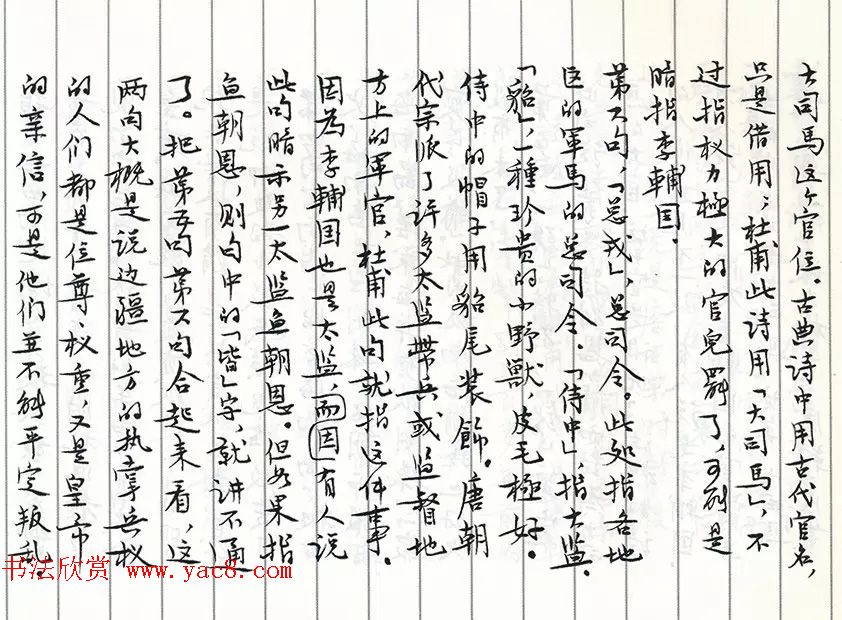 大司馬这个官位。古典诗中用古代官名，
只是借用；杜甫此诗用「大司馬」，不
过指权力極大的官兒罢了，可能是
暗指李輔国．
第六句，「总戎」，总司令。此处指各地
区的軍馬的总司令．「侍中」，指太监．
「貂」，一種珍贵的小野獸，皮毛極好．
侍中的帽子用貂尾装飾。唐朝
代宗派了许多太监带兵或监督地
方上的軍官，杜甫此句就指这件事．
因为李輔国也是太监，而因有人说
此句暗示另一太监鱼朝恩。但如果指
鱼朝恩，则句中的「皆」字，就讲不通
了。把第五句第六句合起来看，这
两句大概是说边疆地方的执掌兵权
的人们都是位尊、权重，又是皇帝
的亲信，可是他们並不能平定叛乱．
书法欣赏 www.yac8.com